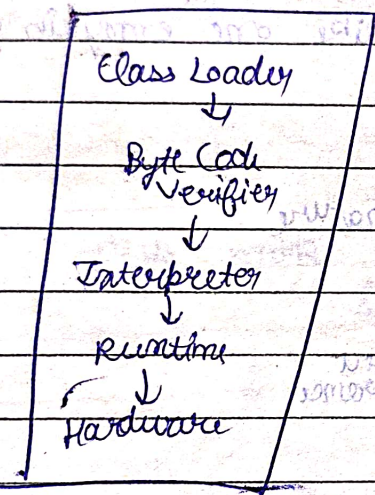 Class Loader
↓
Byte Code
Verifier
↓
Interpreter
↓
Runtime
↓
Hardware